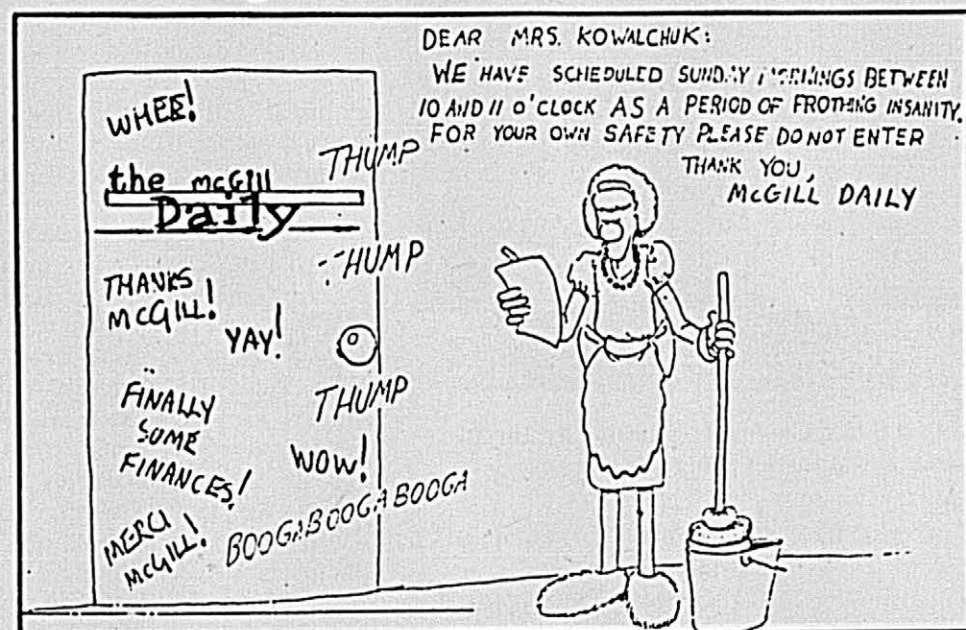 DEAR MRS. KOWALCHUK:
WE HAVE SCHEDULED SUNDAY MORNINGS BETWEEN
10 AND 11 O'CLOCK AS A PERIOD OF FROTHING INSANITY.
FOR YOUR OWN SAFETY PLEASE DO NOT ENTER
THANK YOU,
McGILL DAILY
WHEE!
THUMP
the McGill
Daily
THUMP
THANKS
McGILL!
YAY!
THUMP
FINALLY
SOME
FINANCES!
WOW!
BOOGABOOGABOOGA
MERCI
McGILL!